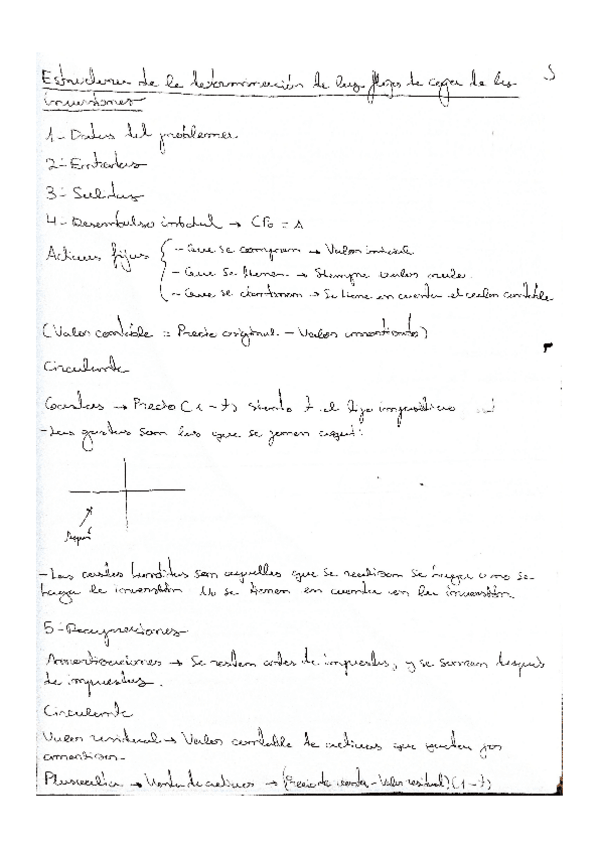 Estructura de la determinación de los flujos de caja de las
inversiones
1- Datos del problema.
2- Entradas
3- Salidas
4- Desembolso inicial → CF₀ = A
Activos fijos { - Que se compran → Valor
- Que se tienen → Siempre valor nulo.
- Que se → Se tiene en cuenta el valor contable
(Valor contable = Precio original - Valor amortizado)
Circulante
Gastos → Precio (1 - t) siendo t el tipo impositivo
- Los gastos son los que se ponen aquí:
Aquí
- Los costes hundidos son aquellos que se realizan se haga o no se
haga la inversión. No se tienen en cuenta en la inversión.
5- Recuperaciones
Amortizaciones → Se restan antes de impuestos, y se suman después
de impuestos.
Circulante
Valor residual → Valor contable de activos que quedan por
amortizar.
Plusvalía → Venta de activos → (Precio de venta - Valor residual)(1 - t)